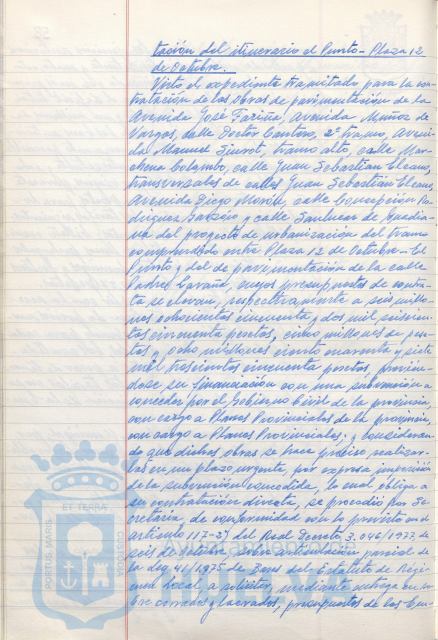 tación del itinerario el Punto - Plaza 12
de Octubre.
Visto el expediente tramitado para la con-
tratación de las obras de pavimentación de la
Avenida José Fariña, Avenida Muñoz de
Vargas, calle Doctor Cantero, 2º tramo, Aveni-
da Manuel Siurot, tramo alto, calle Mar-
chena Colombo, calle Juan Sebastián Elcano,
transversales de calles Juan Sebastián Elcano,
Avenida Diego Morón, calle Concepción Ro-
driguez Garzón y calle Sanlucar de Guadia-
na del proyecto de urbanización del tramo
comprendido entre Plaza 12 de Octubre - El
Punto y del de pavimentación de la calle
Padre Laraña, cuyos presupuestos de contra-
ta se elevan, respectivamente a seis millo-
nes ochocientas cincuenta y dos mil seiscien-
tas cincuenta pesetas, cinco millones de pese-
tas y ocho millones ciento cuarenta y siete
mil trescientas cincuenta pesetas, previén-
dose su financiación con una subvención a
conceder por el Gobierno Civil de la provincia,
con cargo a Planes Provinciales de la provincia,
con cargo a Planes Provinciales; y consideran-
do que dichas obras se hace preciso realizar-
las en un plazo urgente, por expresa imposición
de la subvención concedida, lo cual obliga a
su contratación directa, se procedió por Se-
cretaría, de conformidad con lo previsto en el
artículo 117-3º del Real Decreto 3.046/1977, de
seis de octubre, sobre articulación parcial de
la Ley 41/1975 de Bases del Estatuto de Régi-
men Local a solicitar, mediante entrega en so-
bre cerrado y lacrados, presupuestos de las Em-
PORTUS MARIS
ET TERRAE
CUSTODIA